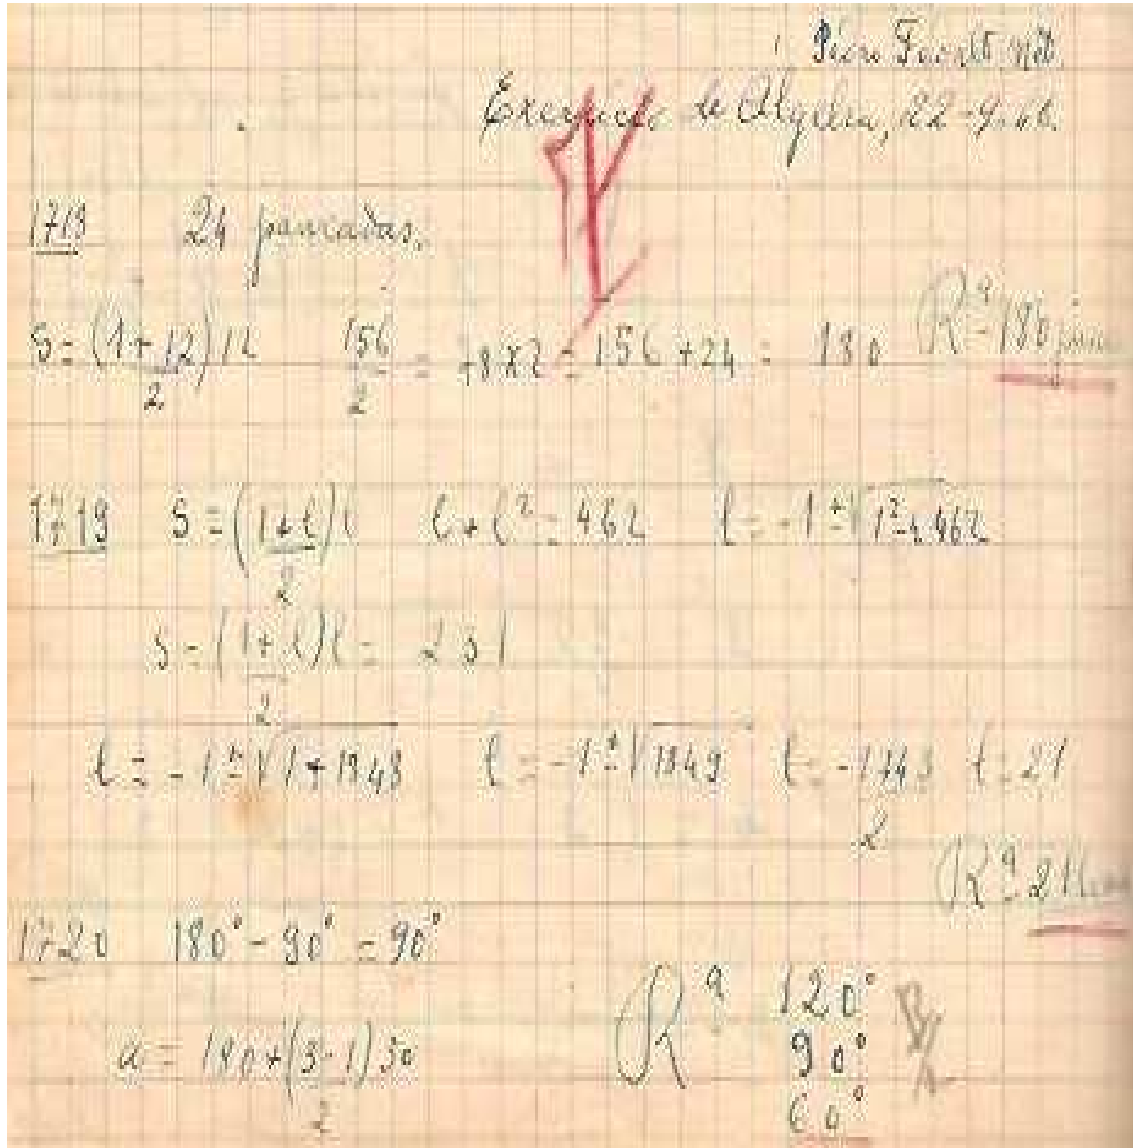 Exercicio de Algebra, 22-9-
1719 24 pancadas.
S = (1 + 12) 12 / 2 156 / 2 = 78 x 2 = 156 + 24 = 180 R.ª 180
1719 S = (1 + l) l / 2 l + l² = 462 l = -1 ± √1² - 4 462
S = (1 + l) l / 2 = 231
l = -1 ± √1 + 1848 l = -1 ± √1849 l = -1 + 43 / 2 l = 21
R.ª 21
1720 180° - 90° = 90°
R.ª 120°
90°
a = 180 + (3 - 1) 30 / 2
60°